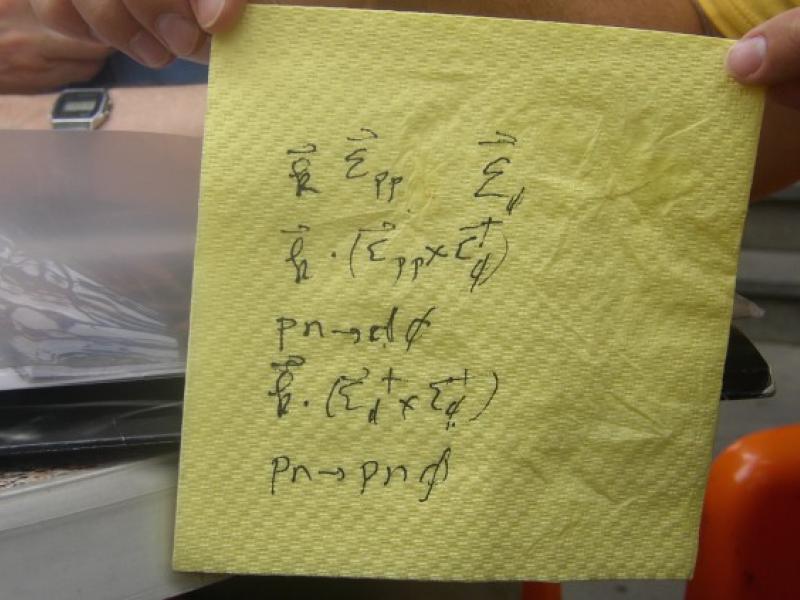 k⃗ ε⃗_pp ε⃗_d
k⃗ · (ε⃗_pp × ε⃗_ϕ^†)
pn → dϕ
k⃗ · (ε⃗_d^† × ε⃗_ϕ^†)
pn → pnϕ